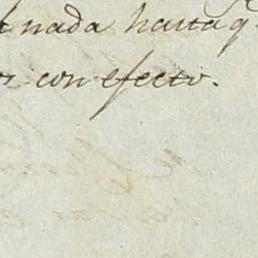 nada hasta q
con efecto.